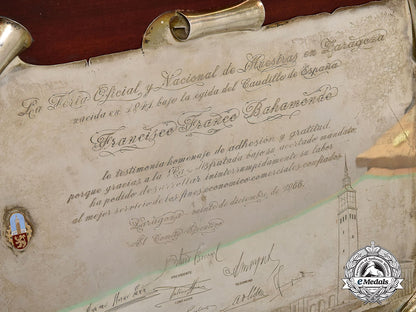 La Feria Oficial y Nacional de Muestras en Zaragoza
nacida en 1941 bajo la egida del Caudillo de España
Francisco Franco Bahamonde
le testimonia homenaje de adhesion y gratitud
porque gracias a la Paz disfrutada bajo su acertado mandato
ha podido desarrollar ininterrumpidamente su labor
al mejor servicio de los fines economico-comerciales confiados
Zaragoza, veinte de diciembre, de 1966.
El Comité Ejecutivo
PRESIDENTE
eMedals